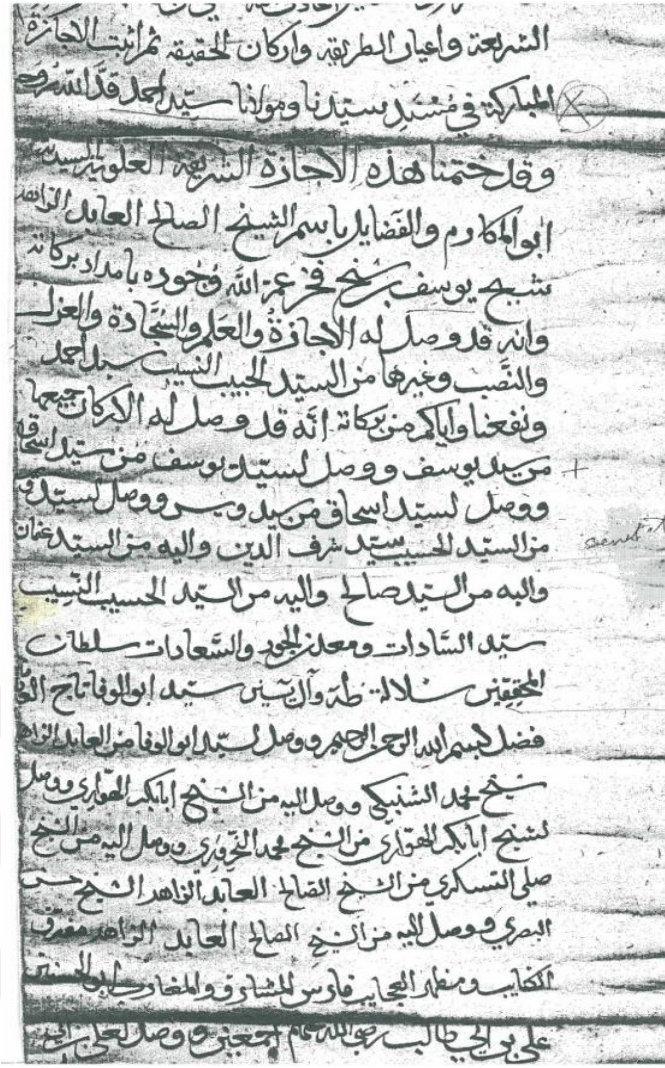 الشريعة واعيان الطريقة واركان الحقيقة ثم اثبت الاجازة
المباركة في مسند سيدنا ومولانا سيد احمد قد الله
وقد ختمنا هذه الاجازة الشريفة العلوية
ابو المكارم والفضايل باسم الشيخ الصالح العابد الزاهد
شيخ يوسف بن شيخ فخر عز الله وجوده بامداد بركاته
وانه قد وصل له الاجازة والعلم والسجادة والعزل
والنصب وغيرها من السيد الحبيب النسيب سيد احمد
ونفعنا واياكم من بركاته انه قد وصل له الاركان جميعها
من سيد يوسف ووصل لسيد يوسف من سيد اسحاق
ووصل لسيد اسحاق من سيد ويس ووصل لسيد
من السيد الحسيب سيد شرف الدين واليه من السيد عثمان
واليه من السيد صالح واليه من السيد الحسيب النسيب
سيد السادات ومعدن الجود والسعادات سلطان
المحققين سلالة طه وآل يسن سيد ابو الوفا تاج
فضل بسم الله الرحمن الرحيم ووصل لسيد ابو الوفا من العابد الزاهد
شيخ محمد الشنبكي ووصل اليه من الشيخ ابابكر الهواري ووصل
لشيخ ابابكر الهواري من الشيخ محمد ووصل اليه من الشيخ
التسكري من الشيخ الصالح العابد الزاهد الشيخ حسن
البصري ووصل اليه من الشيخ الصالح العابد الزاهد
الكتايب ومظهر العجايب فارس المشارق والمغارب ابو الحسنين
علي بن ابي طالب رضي الله عنهم اجمعين ووصل لعلي